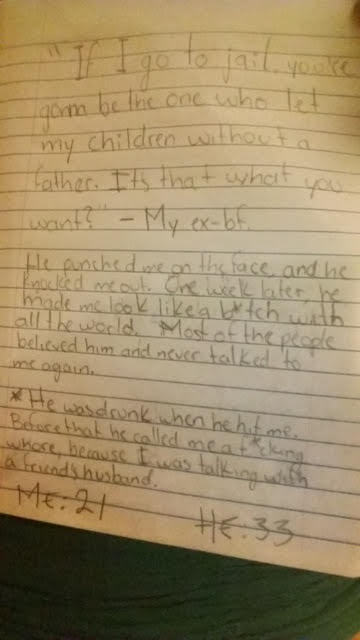 "If I go to jail, you're
gonna be the one who let
my children without a
father. It's that what you
want?" - My ex-bf.
He punched me on the face, and he
knocked me out. One week later, he
made me look like a b*tch with
all the world. Most of the people
believed him and never talked to
me again.
* He was drunk when he hit me.
Before that he called me a f*cking
whore, because I was talking with
a friend's husband.
ME: 21
HE: 33